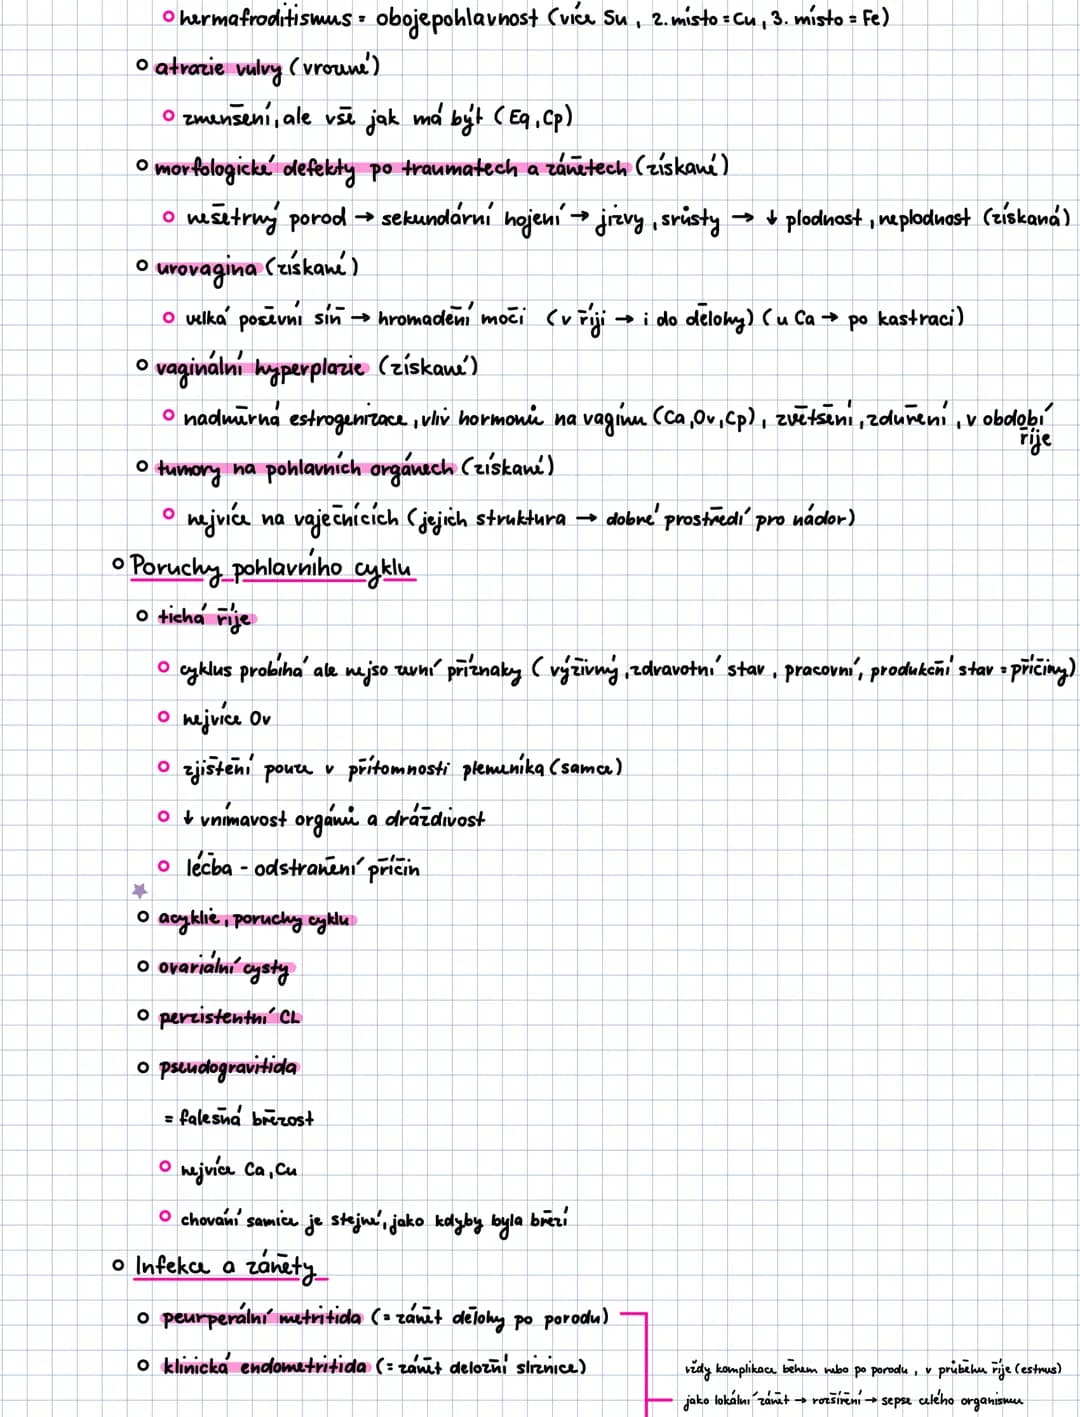 hermafroditismus = obojepohlavnost (více Su, 2. místo = Cu, 3. místo = Fe)
atrazie vulvy (vrozené)
zmenšení, ale vše jak má být (Eq, Cp)
morfologické defekty po traumatech a zánětech (získané)
nešetrný porod → sekundární hojení → jizvy, srůsty → ↓ plodnost, neplodnost (získaná)
urovagina (získané)
velká poševní síň → hromadění moči (v říji → i do dělohy) (u Ca → po kastraci)
vaginální hyperplazie (získané)
nadměrná estrogenizace, vliv hormonů na vagínu (Ca, Ov, Cp), zvětšení, zduření, v období
říje
tumory na pohlavních orgánech (získané)
nejvíce na vaječnících (jejich struktura → dobré prostředí pro nádor)
Poruchy pohlavního cyklu
tichá říje
cyklus probíhá ale nejso zevní příznaky (výživný, zdravotní stav, pracovní, produkční stav = příčiny)
nejvíce Ov
zjištění pouze v přítomnosti plemeníka (samce)
↓ vnímavost orgánů a dráždivost
léčba - odstranění příčin
acyklie, poruchy cyklu
ovariální cysty
perzistentní CL
pseudogravitida
= falešná březost
nejvíce Ca, Cu
chování samice je stejné, jako kdyby byla březí
Infekce a záněty
peurperální metritida (= zánět dělohy po porodu)
klinická endometritida (= zánět děložní sliznice)
vždy komplikace během nebo po porodu, v průběhu říje (estrus)
jako lokální zánět → rozšíření → sepse celého organismu